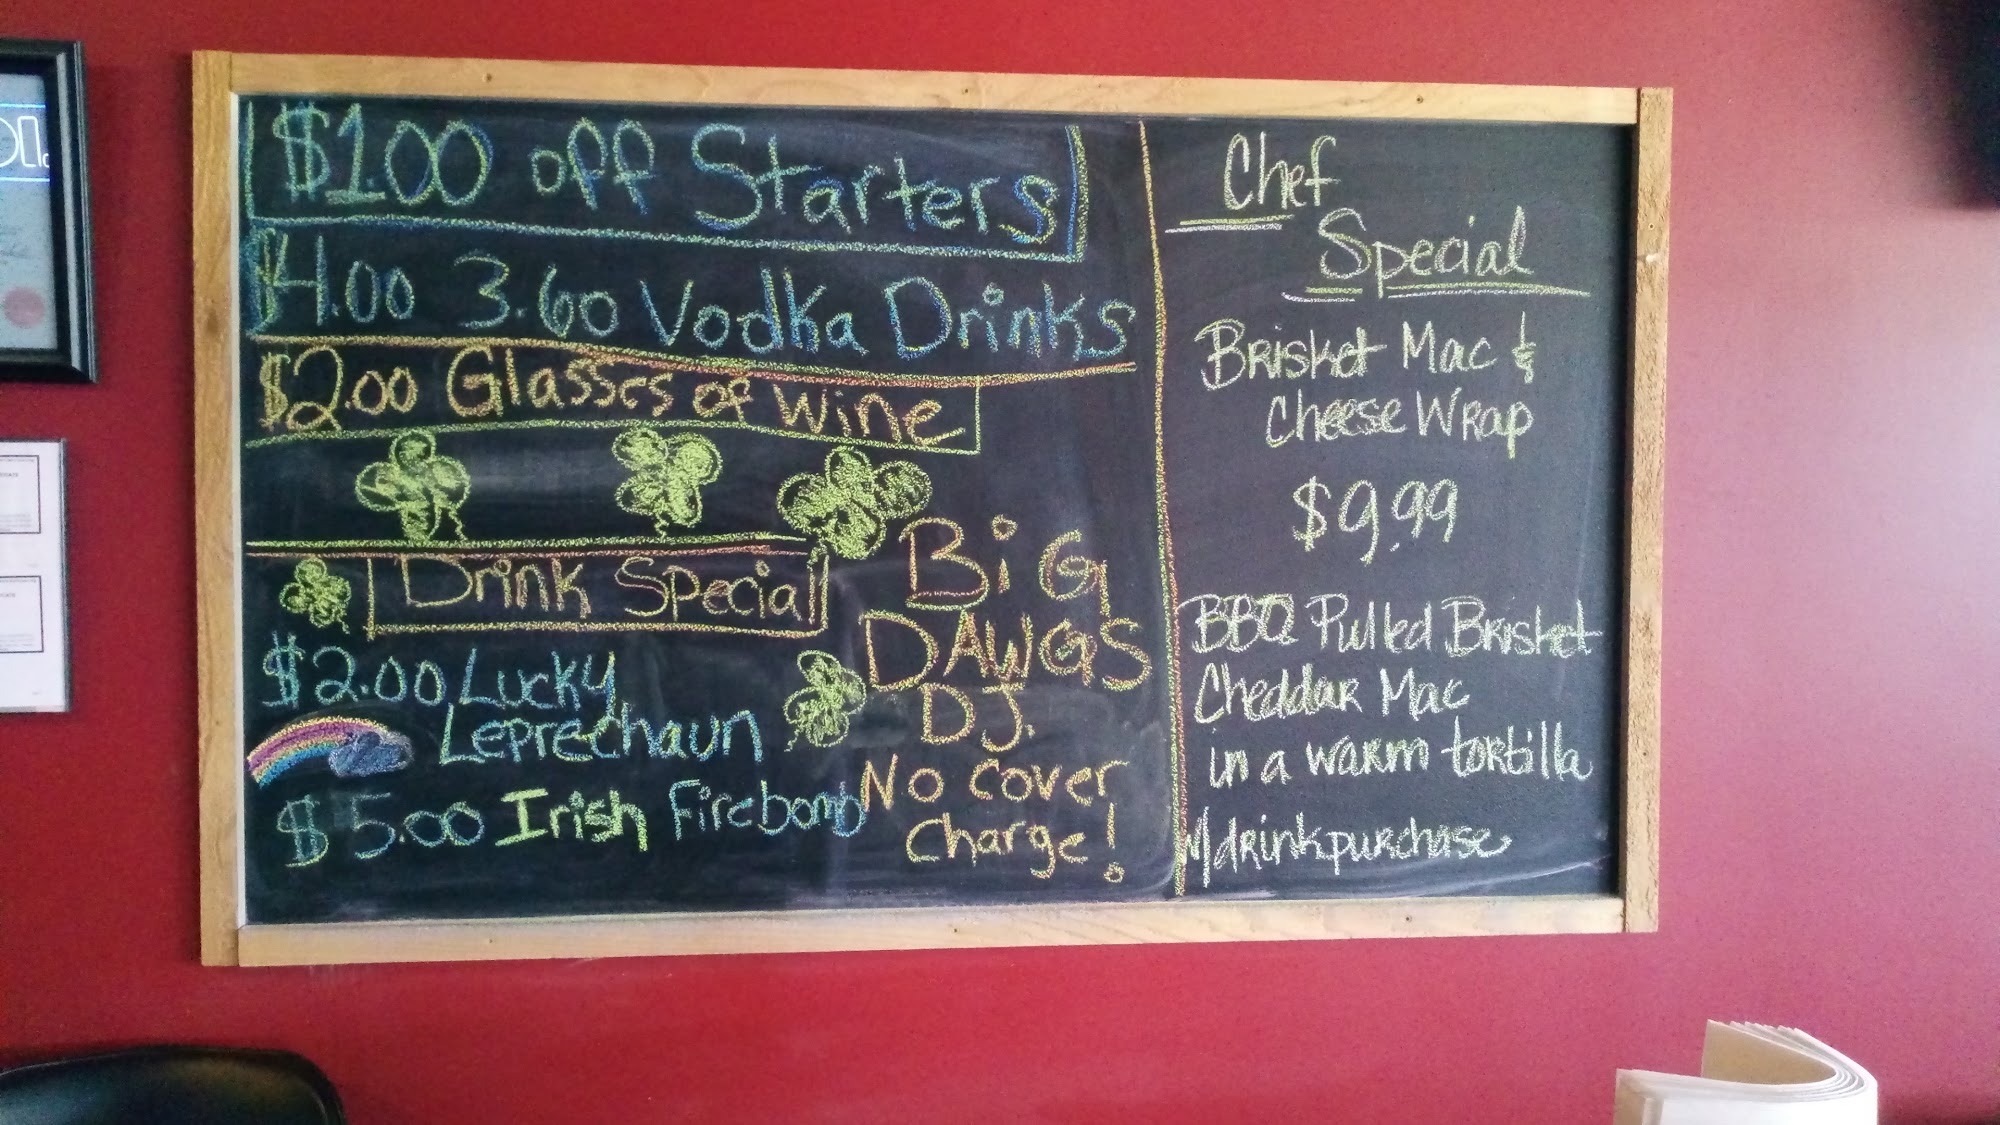 $1.00 off Starters
$4.00 3.60 Vodka Drinks
$2.00 Glasses of wine
Drink Special
$2.00 Lucky
Leprechaun
$5.00 Irish Firebomb
BiG
DAWGS
DJ.
No cover
Charge!
Chef
Special
Brisket Mac &
Cheese Wrap
$9.99
BBQ Pulled Brisket
Cheddar Mac
in a warm tortilla
w/drink purchase